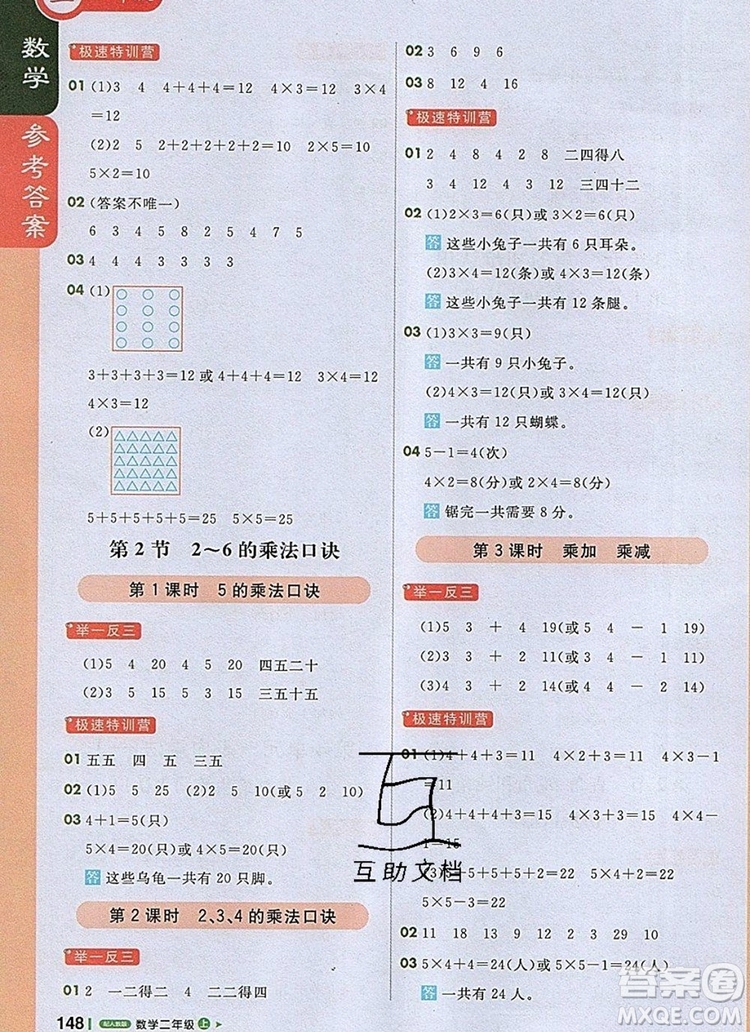 数学
参考答案
极速特训营
01 (1)3 4 4+4+4=12 4×3=12 3×4
=12
(2)2 5 2+2+2+2+2=10 2×5=10
5×2=10
02 (答案不唯一)
6 3 4 5 8 2 5 4 7 5
03 4 4 4 3 3 3 3
04 (1)
3+3+3+3=12或4+4+4=12 3×4=12
4×3=12
(2)
5+5+5+5+5=25 5×5=25
第2节 2～6的乘法口诀
第1课时 5的乘法口诀
举一反三
(1)5 4 20 4 5 20 四五二十
(2)3 5 15 5 3 15 三五十五
极速特训营
01 五五 四 五 三五
02 (1)5 25 (2)2 5 10(或5 2 10)
03 4+1=5(只)
5×4=20(只)或4×5=20(只)
答 这些乌龟一共有20只脚。
第2课时 2、3、4的乘法口诀
举一反三
01 2 一二得二 4 二二得四
148 配人教版 数学二年级 上
02 3 6 9 6
03 8 12 4 16
极速特训营
01 2 4 8 4 2 8 二四得八
3 4 12 4 3 12 三四十二
02 (1)2×3=6(只)或3×2=6(只)
答 这些小兔子一共有6只耳朵。
(2)3×4=12(条)或4×3=12(条)
答 这些小兔子一共有12条腿。
03 (1)3×3=9(只)
答 一共有9只小兔子。
(2)4×3=12(只)或3×4=12(只)
答 一共有12只蝴蝶。
04 5-1=4(次)
4×2=8(分)或2×4=8(分)
答 锯完一共需要8分。
第3课时 乘加 乘减
举一反三
(1)5 3 + 4 19(或5 4 - 1 19)
(2)3 3 + 2 11(或3 4 - 1 11)
(3)4 3 + 2 14(或4 4 - 2 14)
极速特训营
01 (1)4+4+3=11 4×2+3=11 4×3-1
=11
(2)4+4+4+3=15 4×3+3=15 4×4-
1=15
5+5+5+5+2=22 5×4+2=22
5×5-3=22
02 11 18 13 2 33 29 10
03 5×4+4=24(人)或5×5-1=24(人)
答 一共有24人。
互助文档
答案圈
MXQE.COM